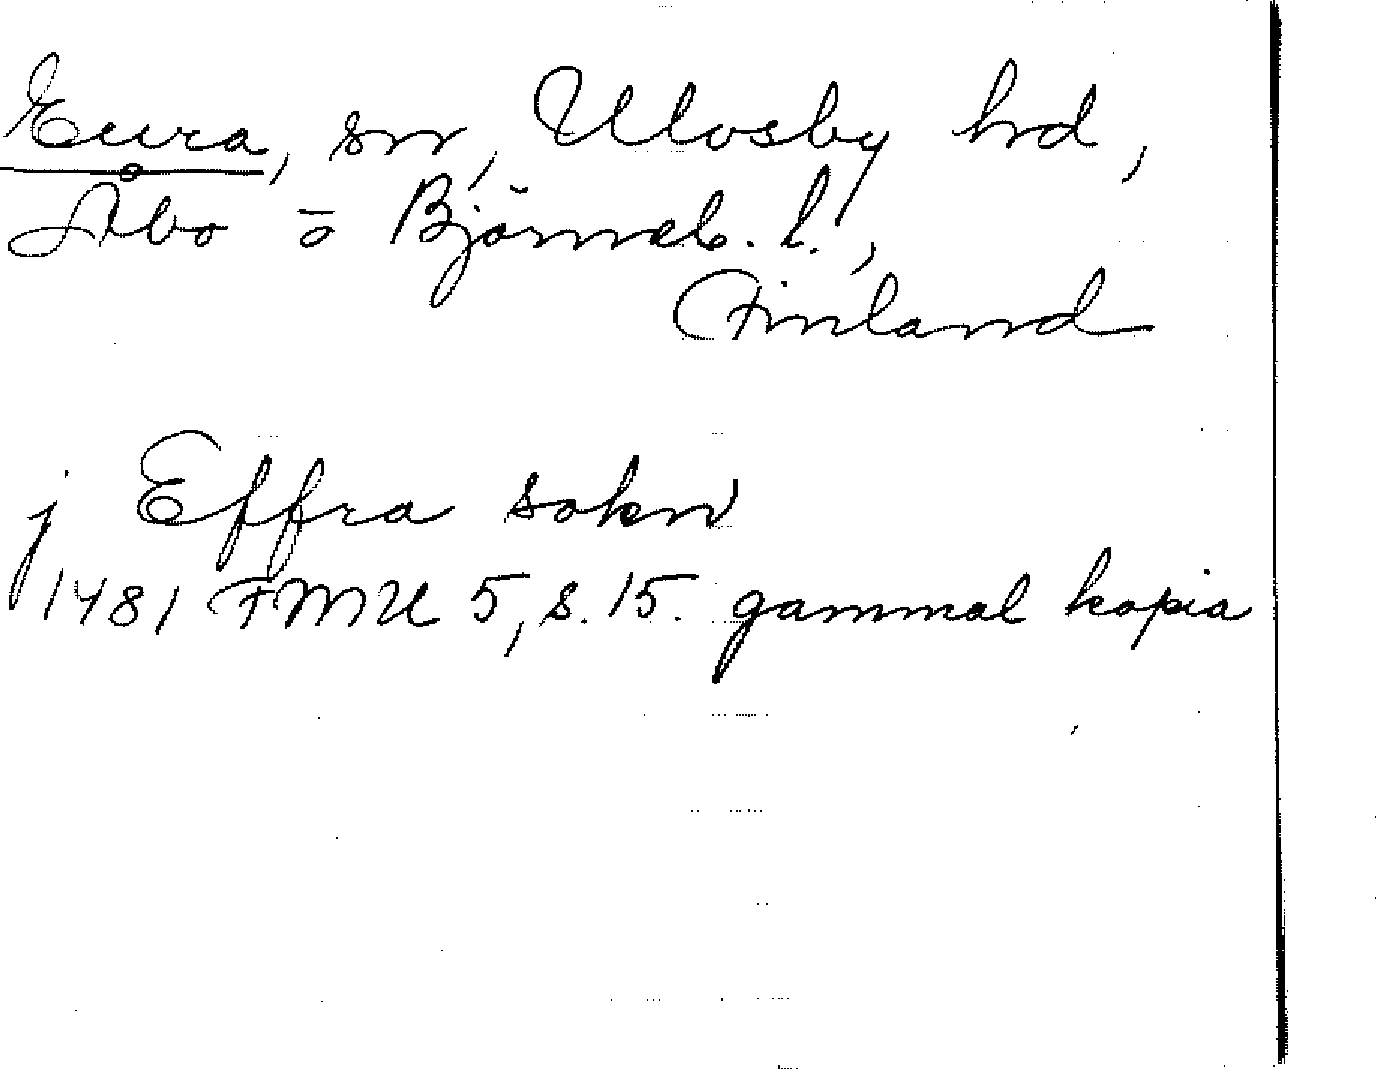 Eura, sn, Ulvsby hd,
Åbo o Björneb. l.,
Finland
j Effra sokn
1481 FMU 5, s. 15. gammal kopia